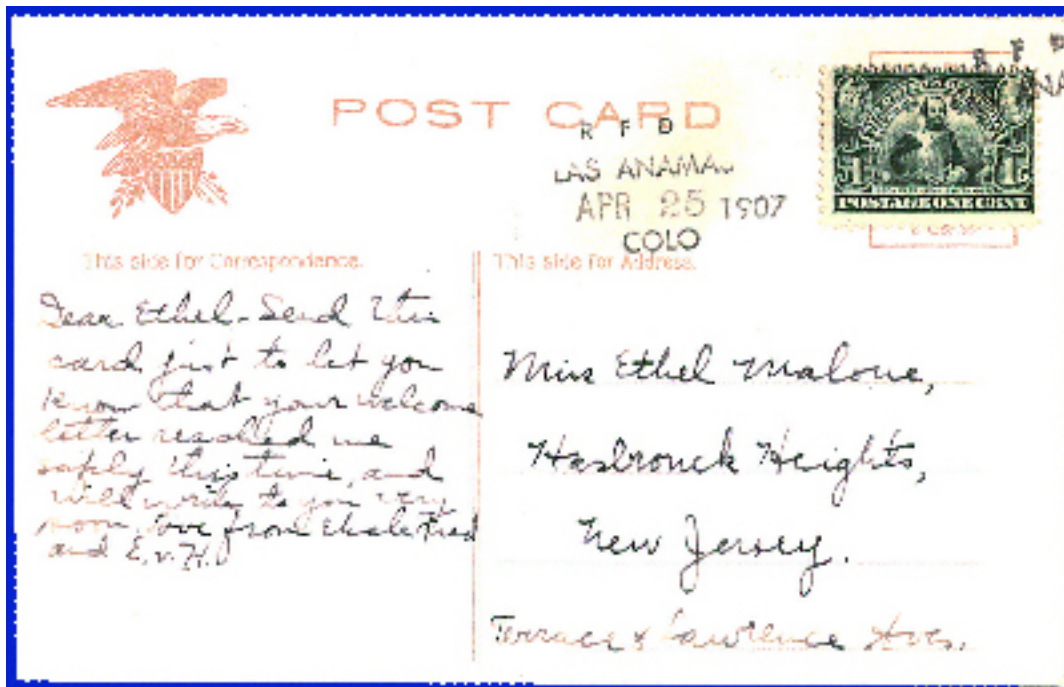 POST CARD
R F D
LAS ANAMAS
APR 25 1907
COLO
R F D
POSTAGE ONE CENT
This side for Correspondence.
This side for Address.
Dear Ethel - Send this
card just to let you
know that your welcome
letter reached me
safely this time, and
will write to you very
soon. Love from
and E.V.H.
Miss Ethel Malone,
Hasbrouck Heights,
New Jersey.
Terrace & Lawrence Aves.